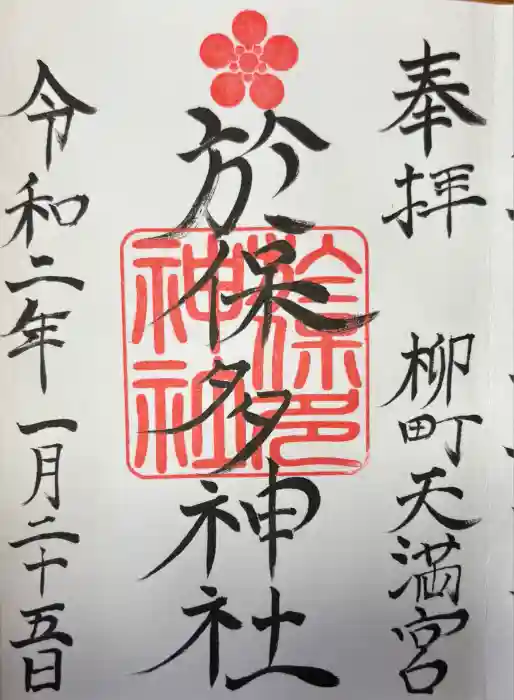 奉拝　柳町天満宮
於保多神社
於保多神社
令和二年一月二十五日